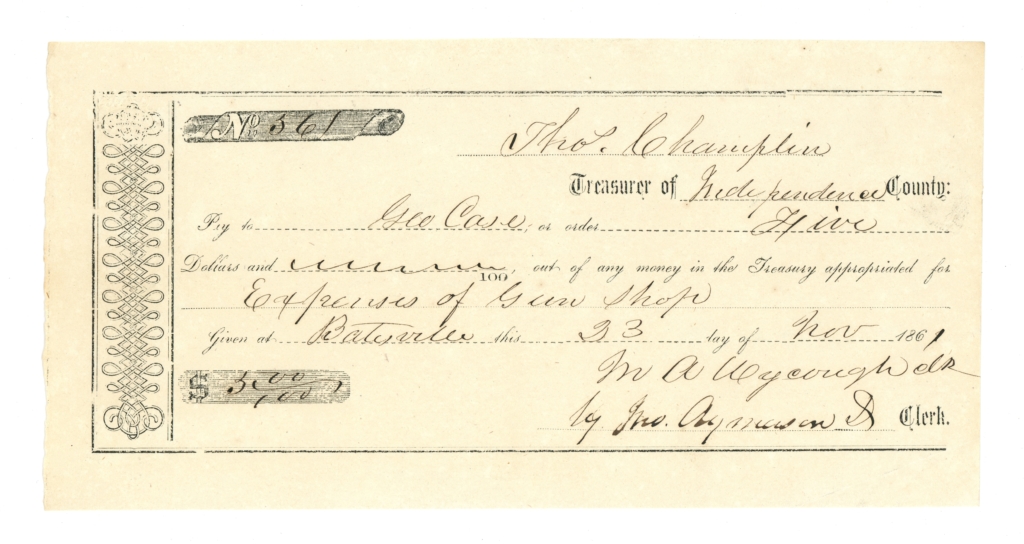 No. 561
Tho. Champlin
Treasurer of Independence County:
Pay to Geo Case, or order Five
Dollars and /100, out of any money in the Treasury appropriated for
Expenses of Gun Shop
Given at Batesville this 23 day of Nov 1861
$ 5 00/100
M A Wycough clk
by Jno. A D Clerk.